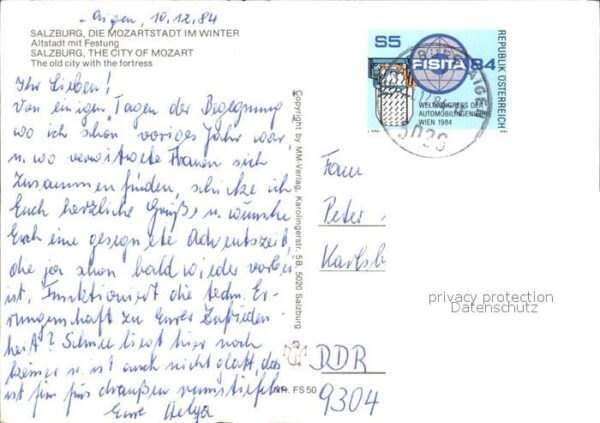 Aigen, 10.12.84
SALZBURG, DIE MOZARTSTADT IM WINTER
Altstadt mit Festung
SALZBURG, THE CITY OF MOZART
The old city with the fortress
Ihr Lieben!
Von einigen "Tagen der Begegnung",
wo ich schon voriges Jahr war,
u. wo verwitwete Frauen sich
zusammenfinden, schicke ich
Euch herzliche Grüße u. wünsche
Euch eine gesegnete Adventszeit,
die ja schon bald wieder vorbei
ist. Funktioniert die techn. Er-
rungenschaft zu Eurer Zufrieden-
heit? Schnee liegt hier noch
keiner u. ist auch nicht glatt, das
ist für draußen
Eure Helga
Copyright by MM-Verlag, Karolingerstr. 5B, 5020 Salzburg
NR. FS 50
S5
FISITA 84
WELTKONGRESS DER
AUTOMOBILINGENIEURE
WIEN 1984
REPUBLIK ÖSTERREICH
AIGEN
5026
Frau
Peter
Karlsb
privacy protection
Datenschutz
DDR
9304